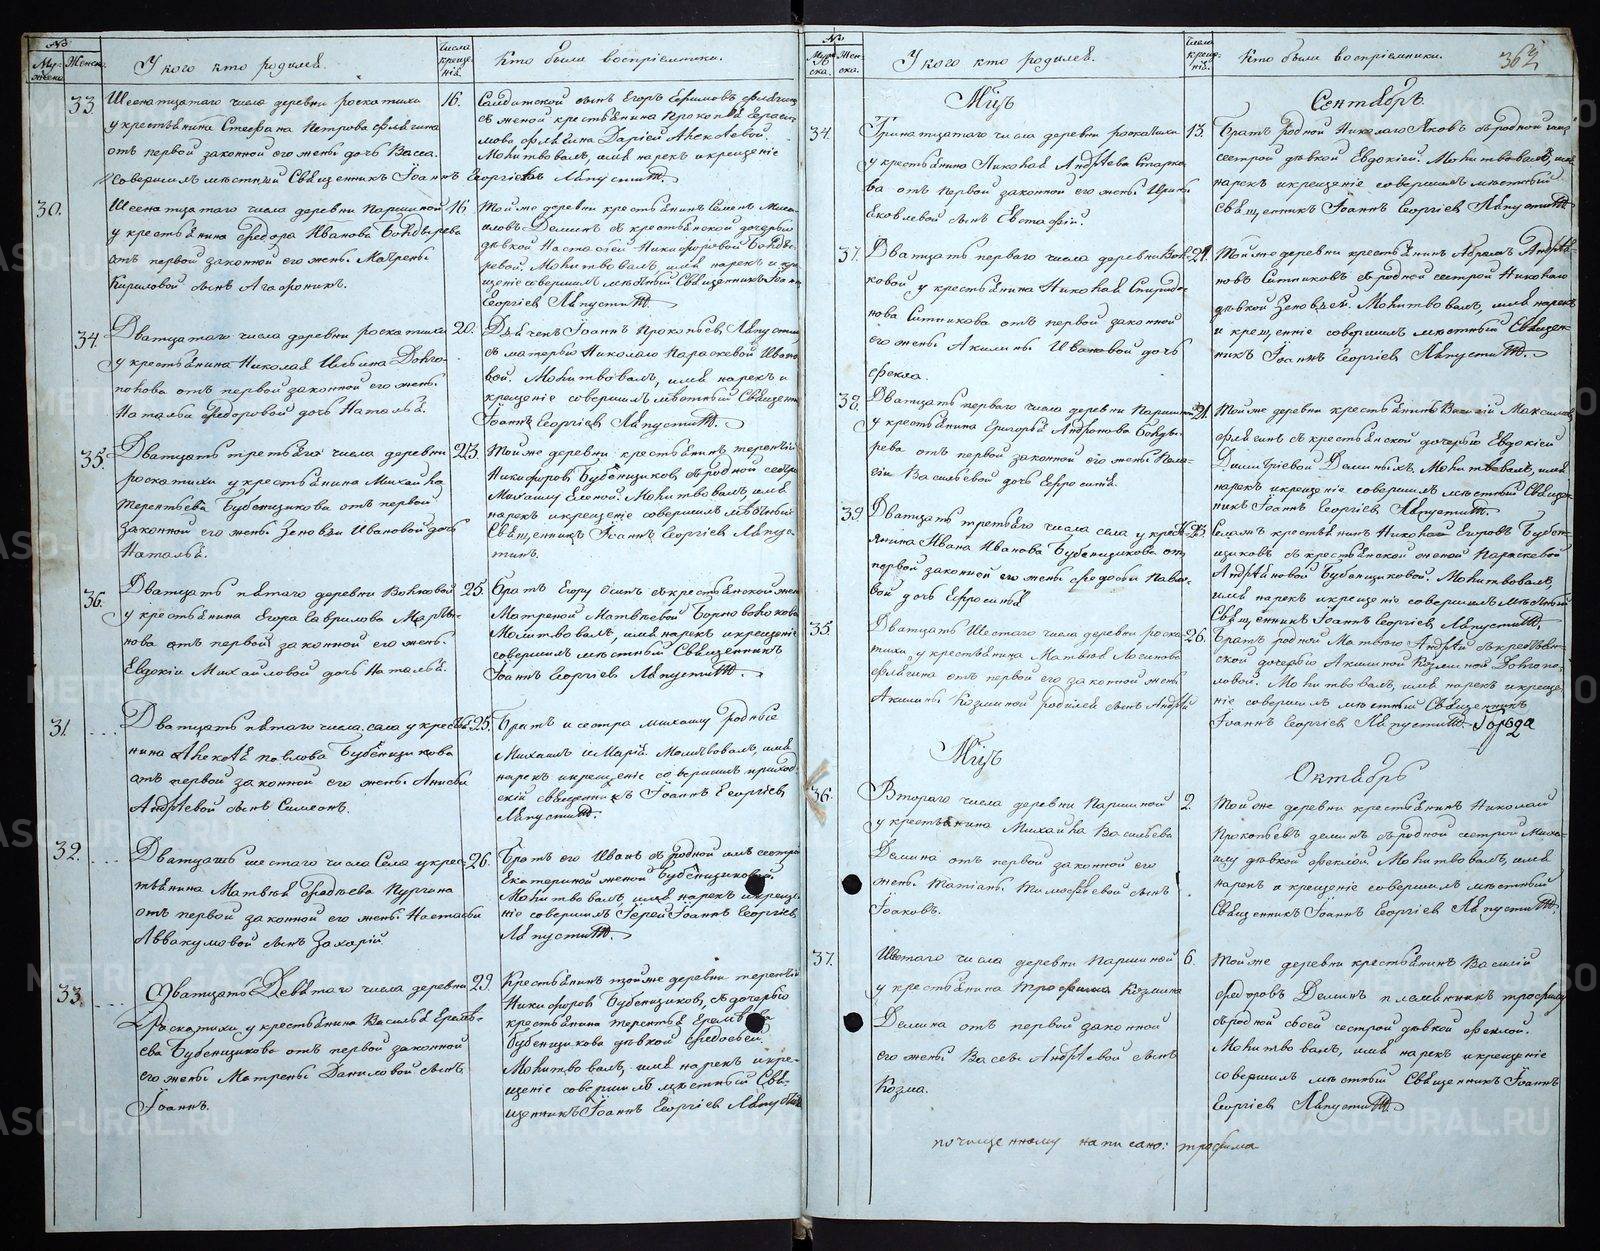 №
Муже-
ска.
Женска.
У кого кто родился.
Числа
креще-
нiя.
Кто были воспрiемники.
33.
Шеснатцатаго числа деревни роскатихи
у крестьянина Стефана Петрова
отъ первой законной его жены дочь Васса.
16.
Солдатской сынъ Егоръ Ефимовъ
съ женой крестьянина Прокопья
Дарьей Алексѣевой.
Молитвовалъ, имя нарекъ и крещенiе
совершилъ мѣстный Священникъ Iоаннъ Георгiевъ Ляпустинъ.
30.
Шеснатцатаго числа деревни Паршиной
у крестьянина Федора Иванова
отъ первой законной его жены Матрены
Кириловой сынъ Агафоникъ.
16
Той же деревни крестьянинъ Семенъ
Деминъ съ крестьянской дочерью
дѣвкой Настасьей Никифоровой
Молитвовалъ, имя нарекъ и кре-
щенiе совершилъ мѣстный Священникъ Iоаннъ
Георгiевъ Ляпустинъ
34.
Дватцатаго числа деревни роскатихи
у крестьянина Николая Ильина Долго-
полова отъ первой законной его жены
Натальи Федоровой дочь Наталья.
20.
Дьяченъ Iоаннъ Прокопьевъ Ляпустинъ
съ матерью Николаю Параскевой Ивано-
вой. Молитвовалъ, имя нарекъ и
крещенiе совершилъ мѣстный Священникъ
Iоаннъ Георгiевъ Ляпустинъ.
35.
Дватцать третьяго числа деревни
роскатихи у крестьянина Михайла
Терентьева Бубенщикова отъ первой
законной его жены Зеновьи Ивановой дочь
Наталья.
23.
Той же деревни крестьянинъ терентiй
Никифоровъ Бубенщиковъ, съ родной сестрой
Михаилу Еленой. Молитвовалъ, имя
нарекъ и крещенiе совершилъ мѣстный
Священникъ Iоаннъ Георгiевъ Ляпус-
тинъ.
36.
Дватцать пятаго деревни Волковой
у крестьянина Егора Гаврилова
отъ первой законной его жены
Евдокiи Михайловой дочь Наталья.
25.
Братъ Егору Осипъ съ крестьянской женой
Матреной Матвѣевой
Молитвовалъ, имя нарекъ и крещенiе
совершилъ мѣстный Священникъ
Iоаннъ Георгiевъ Ляпустинъ.
31.
Дватцать пятаго числа села у кресть-
янина Алексѣя павлова Бубенщикова
отъ первой законной его жены Анисьи
Андреевой сынъ Симеонъ.
25.
Братъ и сестра михаилу родные
Михаилъ и Марiя. Молитвовалъ, имя
нарекъ и крещенiе совершилъ приход-
скiй священникъ Iоаннъ Георгiевъ
Ляпустинъ.
32.
Дватцать шестаго числа Села у крес-
тьянина Матвѣя Фадѣева Пургина
отъ первой законной его жены Настасьи
Аввакумовой сынъ Захарiй.
26.
Братъ его Иванъ съ родной имъ сестрой
Екатериной женой Бубенщиковой.
Молитвовалъ, имя нарекъ и креще-
нiе совершилъ Iерей Iоаннъ Георгiевъ
Ляпустинъ.
33.
Дватцать Девятаго числа деревни
Роскатихи, у крестьянина Василья Еремѣ-
ева Бубенщикова отъ первой законной
его жены Матрены Даниловой сынъ
Iоаннъ.
29.
Крестьянинъ той же деревни терентiй
Никифоровъ Бубенщиковъ, съ дочерью
крестьянина терентья Еремѣева
Бубенщикова дѣвкой Федосьей.
Молитвовалъ, имя нарекъ и кре-
щенiе совершилъ мѣстный Свя-
щенникъ Iоаннъ Георгiевъ Ляпустинъ
№
Муже-
ска.
Жен-
ска.
У кого кто родился.
Числа
креще-
нiя.
Кто были воспрiемники.
362
Мцъ
Сентябрь.
34.
Тринатцатаго числа деревни роскатихи
у крестьянина Николая Андреева Старко-
ва отъ первой законной его жены Ирины
Яковлевой сынъ Евстафiй.
13.
Братъ родной Николаю Яковъ съ родной ему
сестрой дѣвкой Евдокiей. Молитвовалъ, имя
нарекъ и крещенiе совершилъ мѣстный
Священникъ Iоаннъ Георгiевъ Ляпустинъ
37.
Дватцать перваго числа деревни Вол-
ковой у крестьянина Николая Спиридо-
нова Ситникова отъ первой законной
его жены Акилины Ивановой дочь
Фекла.
21.
Той же деревни крестьянинъ Абрамъ Андрея-
новъ Ситниковъ съ родной сестрой Николаю
дѣвкой Зеновьей. Молитвовалъ, имя нарекъ
и крещенiе совершилъ мѣстный Священ-
никъ Iоаннъ Георгiевъ Ляпустинъ.
38.
Дватцать перваго числа деревни Паршиной
у крестьянина Григорья Андронова Болды-
рева отъ первой законной его жены Пела-
геи Васильевой дочь Ефросинья.
21.
Той же деревни крестьянинъ Василiй Максимовъ
съ крестьянской дочерью Евдокiей
Димитрiевой Деминыхъ. Молитвовалъ, имя
нарекъ и крещенiе совершилъ мѣстный Священ-
никъ Iоаннъ Георгiевъ Ляпустинъ.
39.
Дватцать третьяго числа села у кресть-
янина Ивана Иванова Бубенщикова отъ
первой законной его жены Федосьи Павло-
вой дочь Ефросинья
23.
Селянъ крестьянинъ Николай Егоровъ Бубен-
щиковъ съ крестьянской женой Параскевой
Андреяновой Бубенщиковой. Молитвовалъ,
имя нарекъ и крещенiе совершилъ мѣстный
Священникъ Iоаннъ Георгiевъ Ляпустинъ
35.
Дватцать Шестаго числа деревни роска-
тихи у крестьянина Матвѣя Логинова
отъ первой его законной жены
Акилины Козминой родился сынъ Андрей
26.
Братъ родной Матвѣю Андрей съ крестьян-
ской дочерью Акилиной Козминой Долгопо-
ловой. Молитвовалъ, имя нарекъ и креще-
нiе совершилъ мѣстный Священникъ
Iоаннъ Георгiевъ Ляпустинъ.
Мцъ
Октябрь
36.
Втораго числа деревни Паршиной
у крестьянина Михайла Васильева
Демина отъ первой законной его
жены Татiаны Тимофѣевой сынъ
Iоаковъ.
2.
Той же деревни крестьянинъ Николай
Прокопьевъ деминъ съ родной сестрой Миха-
илу дѣвкой Феклой. Молитвовалъ, имя
нарекъ и крещенiе совершилъ мѣстный
Священникъ Iоаннъ Георгiевъ Ляпустинъ.
37.
Шестаго числа деревни Паршиной
у крестьянина Трофима Козмина
Демина отъ первой законной
его жены Вассы Андреевой сынъ
Козма.
6.
Той же деревни крестьянинъ Василiй
Федоровъ Деминъ племянникъ трофиму
съ родной своей сестрой дѣвкой Феклой.
Молитвовалъ, имя нарекъ и крещенiе
совершилъ мѣстный Священникъ Iоаннъ
Георгiевъ Ляпустинъ.
по чищенному написано: трофима
METRIKI.GASO-URAL.RU